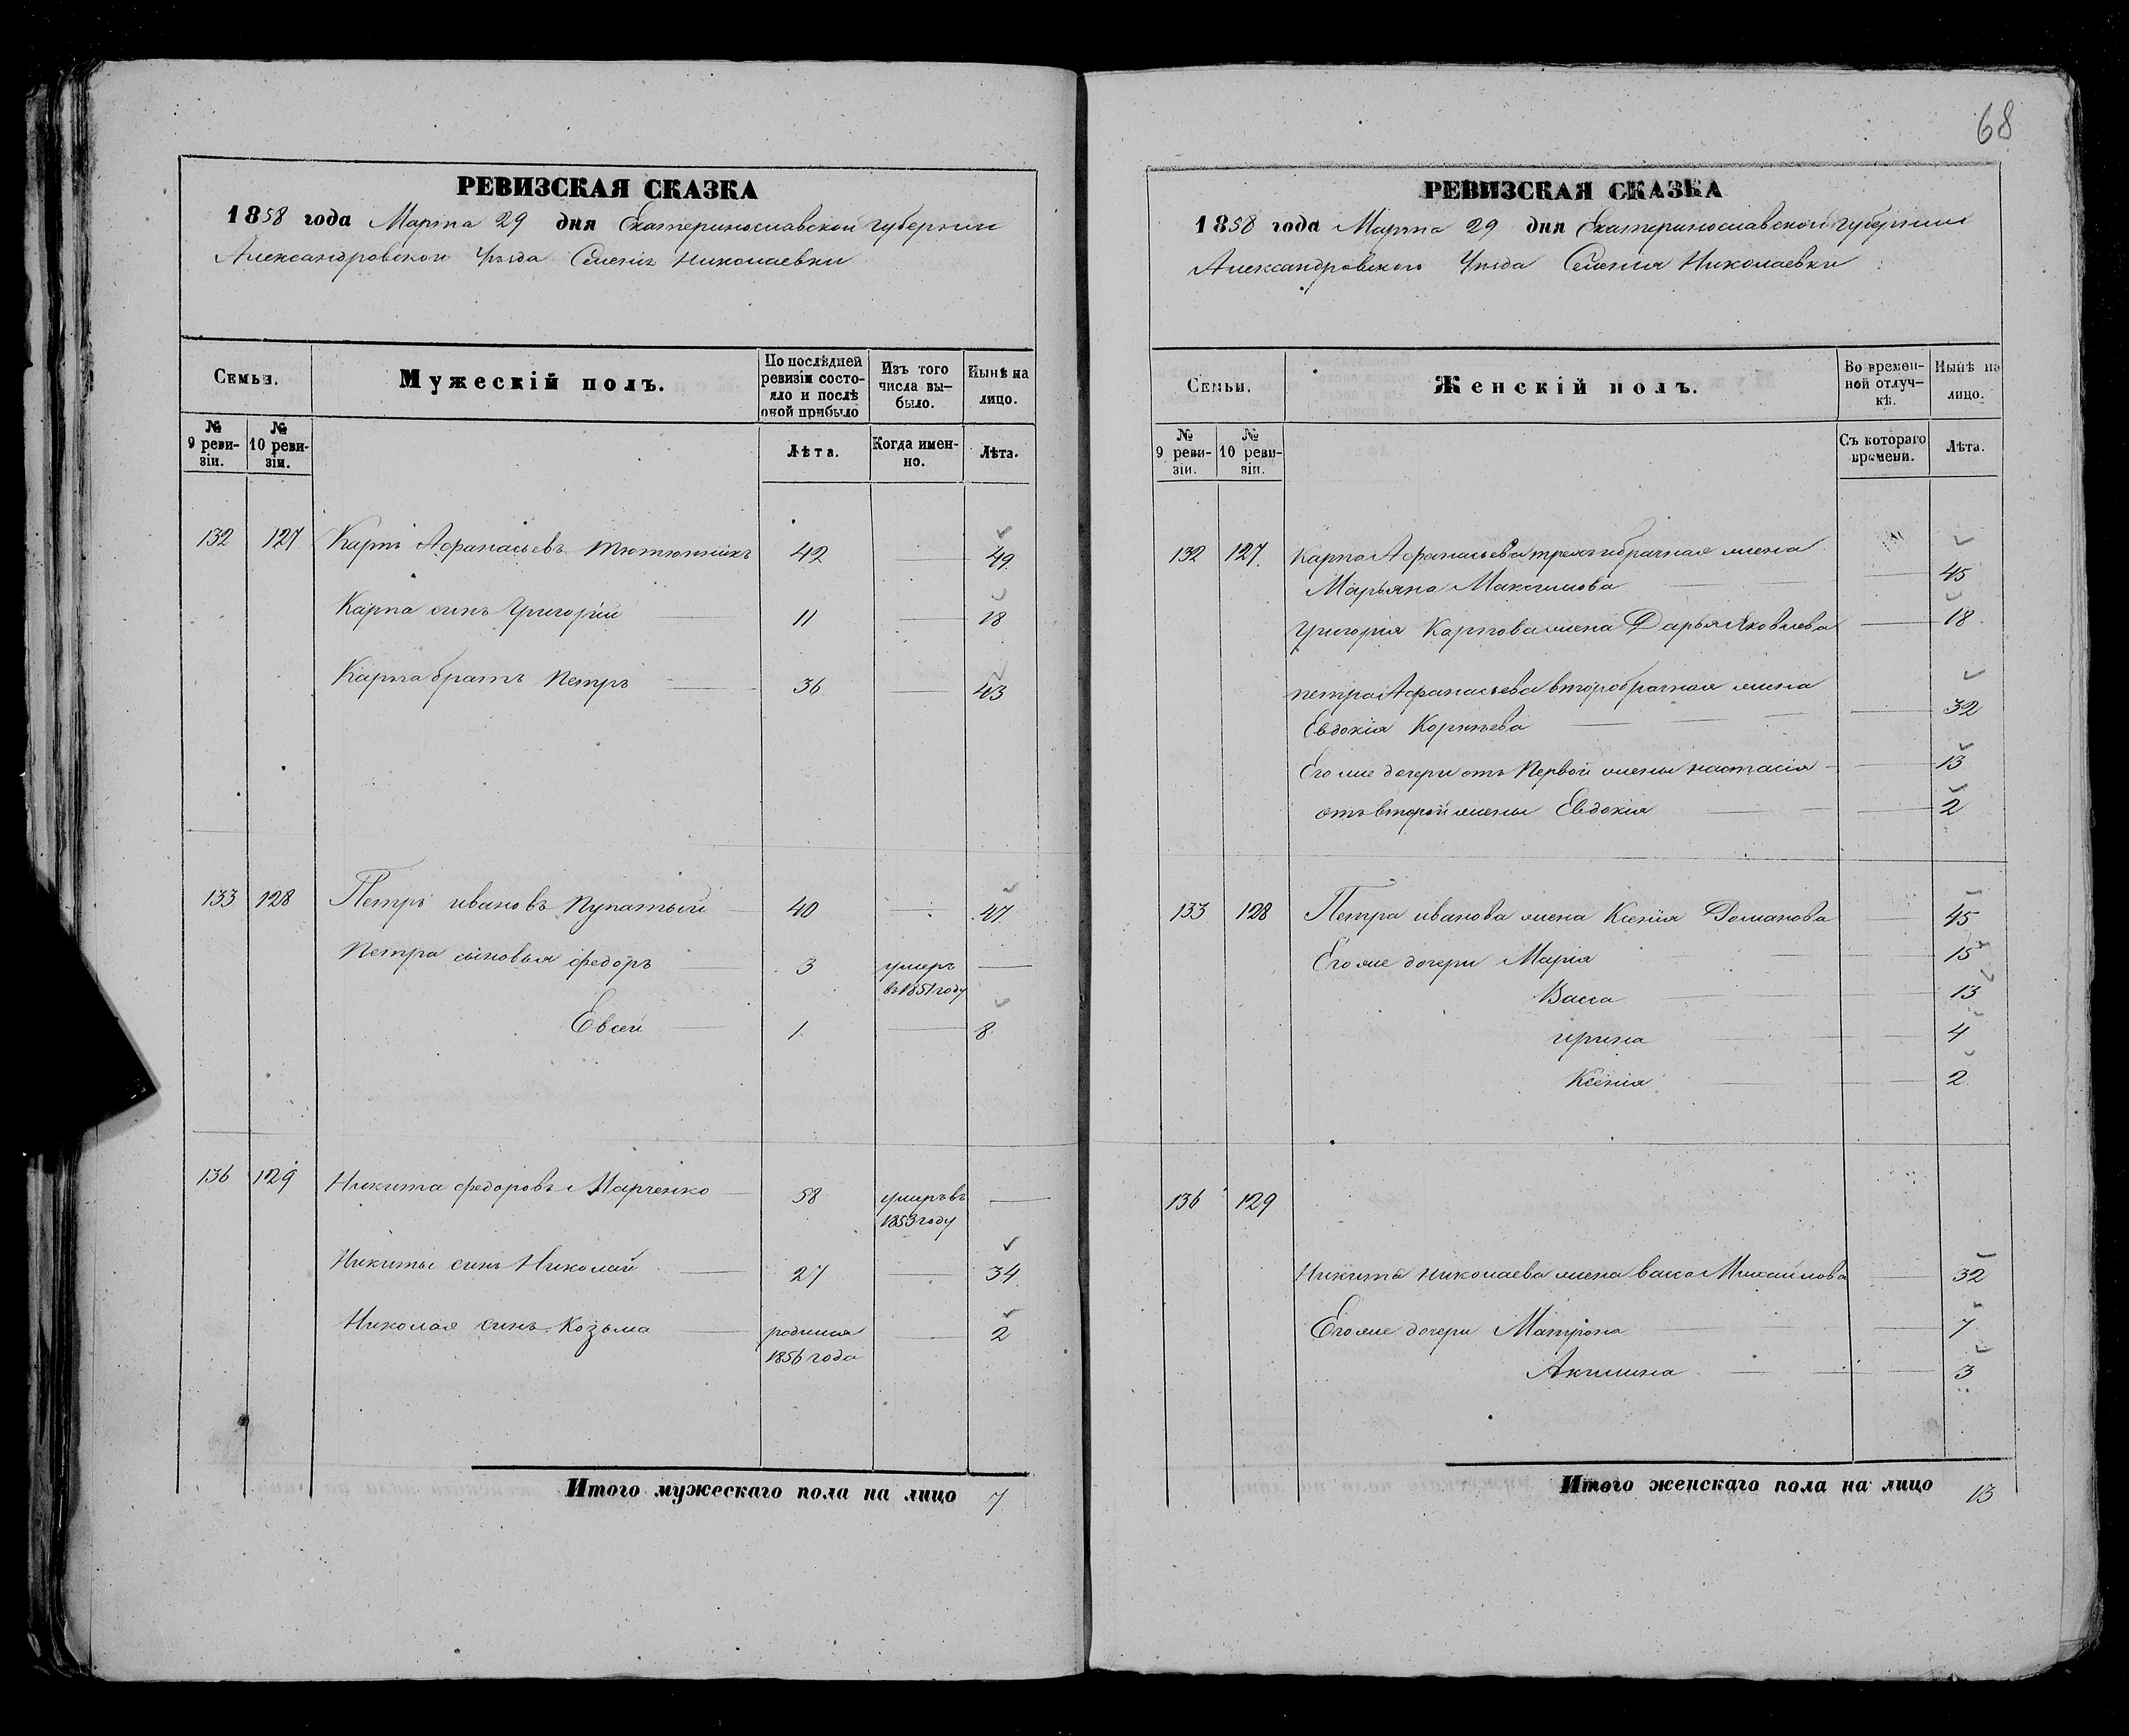 68
РЕВИЗСКАЯ СКАЗКА
1858 года Марта 29 дня Екатеринославской губернии
Александровского Уѣзда Селенія Николаевки
Семьи.
Мужескій полъ.
По послѣдней ревизіи состояло и послѣ оной прибыло
Изъ того числа выбыло.
Нынѣ на лицо.
№ 9 ревизіи.
№ 10 ревизіи.
Лѣта.
Когда именно.
Лѣта.
132 127 Карпъ Афанасьевъ Тютюнникъ 42 49
Карпа сынъ Григорій 11 18
Карпа братъ Петръ 36 43
133 128 Петръ ивановъ Пупатый 40 47
Петра сыновья федоръ 3 умеръ
въ 1851 году
Евсей 1 8
136 129 Никита федоровъ Марченко 58 умеръ въ
1853 году
Никиты сынъ Николай 27 34
Николая сынъ Козьма родился 2
1856 года
Итого мужескаго пола на лицо 7
РЕВИЗСКАЯ СКАЗКА
1858 года Марта 29 дня Екатеринославской губернии
Александровского Уѣзда Селенія Николаевки
Семьи.
Женскій полъ.
Во временной отлучкѣ.
Нынѣ на лицо.
№ 9 ревизіи.
№ 10 ревизіи.
Съ котораго времени.
Лѣта.
132 127. Карпа Афанасьева третьебрачная жена
Марьяна Максимова 45
Григорія Карпова жена Дарья Яковлева 18
петра Афанасьева второбрачная жена
Евдокія Корнѣева 32
Его же дочери отъ Первой жены настасія 13
отъ второй жены Евдокія 2
133 128 Петра иванова жена Ксенія Романова 45
Его же дочери Марія 15
Васса 13
ирина 4
Ксенія 2
136 129
Никита николаева жена васса Михайлова 32
Его же дочери Матрона 7
Акилина 3
Итого женскаго пола на лицо 13